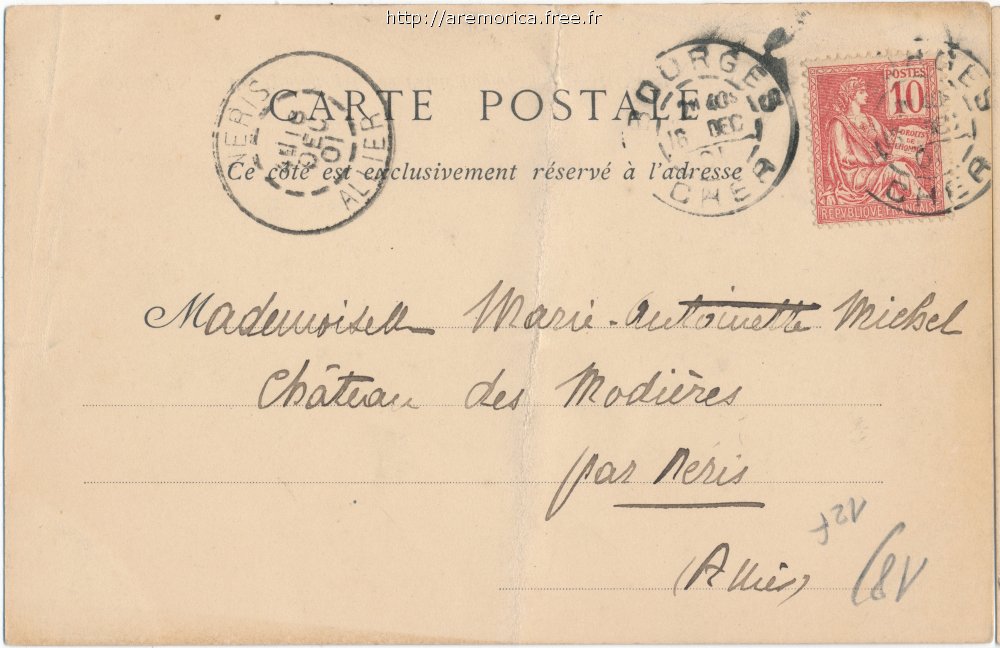 http://aremorica.free.fr
CARTE POSTALE
Ce côté est exclusivement réservé à l'adresse
NERIS
18
DEC
01
ALLIER
BOURGES
DEC
01
CHER
POSTES
10
DROITS
DE
L'HOMME
REPVBLIQVE FRANÇAISE
Mademoiselle Marie-Antoinette Michel
Château des Modières
par Néris
(Allier)
12f